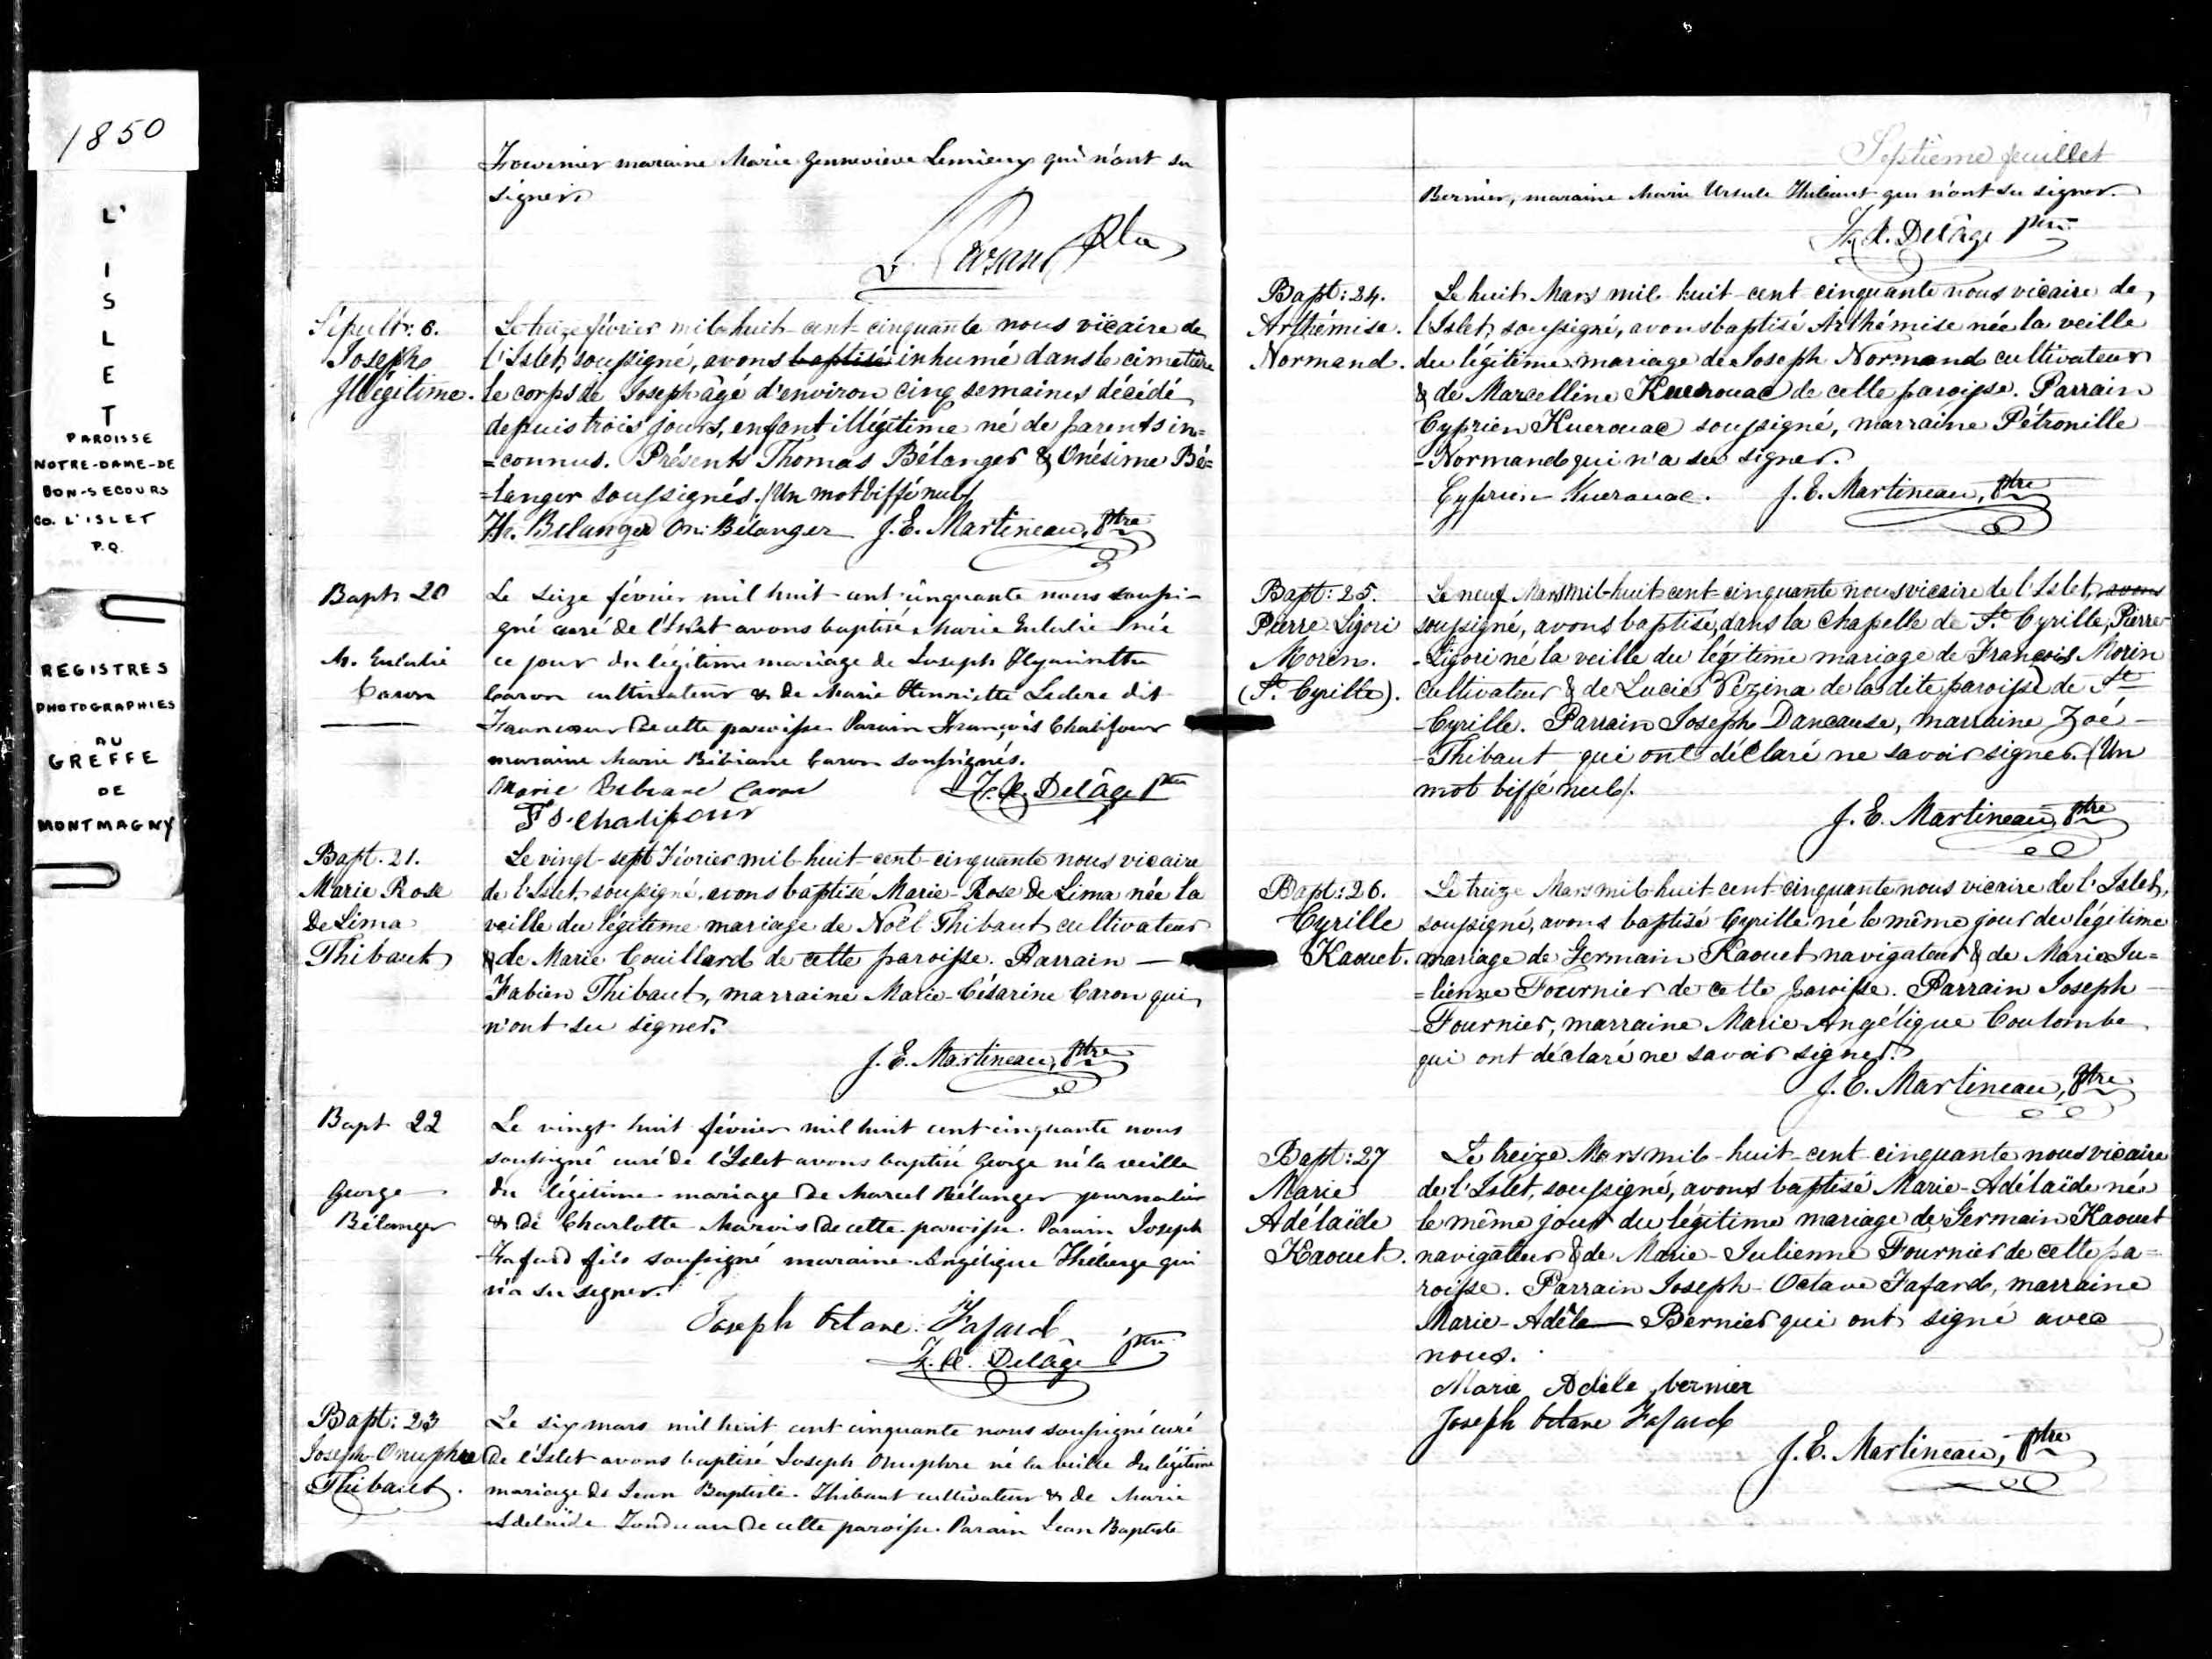 1850
L'
I
S
L
E
T
PAROISSE
NOTRE-DAME-DE
BON-SECOURS
CO. L'ISLET
P.Q.
REGISTRES
PHOTOGRAPHIES
AU
GREFFE
DE
MONTMAGNY
Fournier maraine Marie Genneviève Lemieux qui n'ont su
signer.
Ptre
Sépult: 6.
Joseph
Illégitime.
Le treize février mil-huit-cent-cinquante nous vicaire de
l'Islet, soussigné, avons baptisé inhumé dans le cimetière
le corps de Joseph âgé d'environ cinq semaines décédé
depuis trois jours, enfant illégitime né de parents in=
=connus. Présents Thomas Bélanger & Onésime Bé=
=langer soussignés. (Un mot biffé nul)
Th. Belanger On: Bélanger J. E. Martineau, Ptre
Bapt. 20
M. Eulalie
Caron
Le seize février mil huit-cent-cinquante nous soussi-
gné curé de l'Islet avons baptisé Marie Eulalie née
ce jour du légitime mariage de Joseph Hyacinthe
Caron cultivateur & de Marie Henriette Leclerc dit
Francoeur de cette paroisse Parain François Chalifour
maraine Marie Bibiane Caron soussignés.
Marie Bibiane Caron F. X. Delâge Ptre
Fs. Chalifour
Bapt. 21.
Marie Rose
De Lima
Thibaut
Le vingt-sept Février mil-huit-cent-cinquante nous vicaire
de l'Islet, soussigné, avons baptisé Marie-Rose de Lima née la
veille du légitime mariage de Noël Thibaut cultivateur
& de Marie Couillard de cette paroisse. Parrain —
Fabien Thibaut, marraine Marie-Césarine Caron qui
n'ont su signer.
J. E. Martineau, Ptre
Bapt 22
George
Bélanger
Le vingt huit février mil huit cent cinquante nous
soussigné curé de l'Islet avons baptisé George né la veille
du légitime mariage de Marcel Bélanger journalier
& de Charlotte Marois de cette paroisse. Parain Joseph
Fafard fils soussigné maraine Angélique Théberge qui
n'a su signer.
Joseph Octave Fafard
F. X. Delâge ptre
Bapt: 23
Joseph-Onuphre
Thibaut.
Le six mars mil huit cent cinquante nous soussigné curé
de l'Islet avons baptisé Joseph Onuphre né la veille du légitime
mariage de Jean Baptiste Thibaut cultivateur & de Marie
Adelaïde de cette paroisse. Parain Jean Baptiste
Septième feuillet
Bernier, maraine Marie Ursule Thibaut qui n'ont su signer.
F. X. Delâge ptre
Bapt: 24.
Arthémise.
Normand.
Le huit Mars mil huit-cent-cinquante nous vicaire de
l'Islet, soussigné, avons baptisé Arthémise née la veille
du légitime mariage de Joseph Normand cultivateur
& de Marcelline Kuerouac de cette paroisse. Parrain
Cyprien Kuerouac soussigné, marraine Pétronille
-Normand qui n'a su signer.
Cyprien Kuerouac. J. E. Martineau, Ptre
Bapt: 25.
Pierre-Ligori
Morin.
(St. Cyrille).
Le neuf Mars mil-huit-cent-cinquante nous vicaire de l'Islet, avons
soussigné, avons baptisé, dans la Chapelle de St. Cyrille, Pierre-
-Ligori né la veille du légitime mariage de François Morin
cultivateur & de Lucie Pezina de la dite paroisse de St
-Cyrille. Parrain Joseph Dancause, marraine Zoé-
-Thibaut qui ont déclaré ne savoir signer. (Un
mot biffé nul).
J. E. Martineau, Ptre
Bapt: 26.
Cyrille
Kaouet.
Le treize Mars mil-huit-cent-cinquante nous vicaire de l'Islet,
soussigné, avons baptisé Cyrille né le même jour du légitime
mariage de Germain Kaouet navigateur & de Marie Ju=
=lienne Fournier de cette paroisse. Parrain Joseph —
-Fournier, marraine Marie-Angélique Coulombe
qui ont déclaré ne savoir signer.
J. E. Martineau, Ptre
Bapt: 27
Marie
Adélaïde
Kaouet.
Le treize Mars mil-huit-cent-cinquante nous vicaire
de l'Islet, soussigné, avons baptisé Marie-Adélaïde née
le même jour du légitime mariage de Germain Kaouet
navigateur & de Marie-Julienne Fournier de cette pa=
roisse. Parrain Joseph-Octave Fafard, marraine
Marie-Adèle — Bernier qui ont signé avec
nous.
Marie Adèle bernier
Joseph Octave Fafard
J. E. Martineau, Ptre